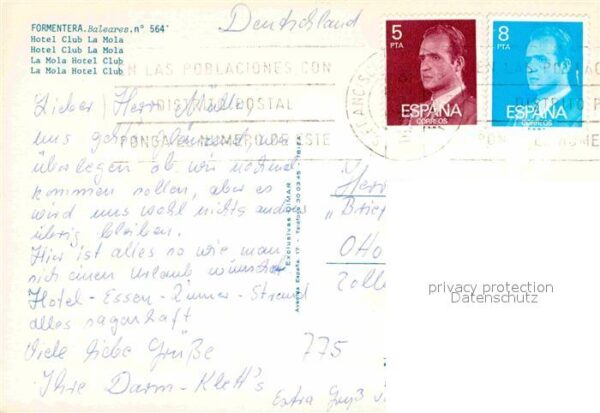 FORMENTERA. Baleares. nº 564
Hotel Club La Mola
Hotel Club La Mola
La Mola Hotel Club
La Mola Hotel Club
Deutschland
5
PTA
ESPAÑA
CORREOS
8
PTA
ESPAÑA
CORREOS
EN LAS POBLACIONES, CON
DISTRITO POSTAL
PONGA EL NUMERO DE ESTE
Lieber Herr Müller
uns geht
überlegen ob wir nochmal
kommen sollen, aber es
wird uns wohl nichts anders
übrig bleiben.
Hier ist alles so wie man
sich einen Urlaub wünscht
Hotel - Essen - Zimmer - Strand
alles sagenhaft
Viele liebe Grüße
775
Ihre Darm-Klett's
Extra Gruß
Exclusivas DIMAR
Avenida España, 17 - Teléfono 30 03 45 - IBIZA
Herr
"Brief
Otto
Zoll
privacy protection
Datenschutz